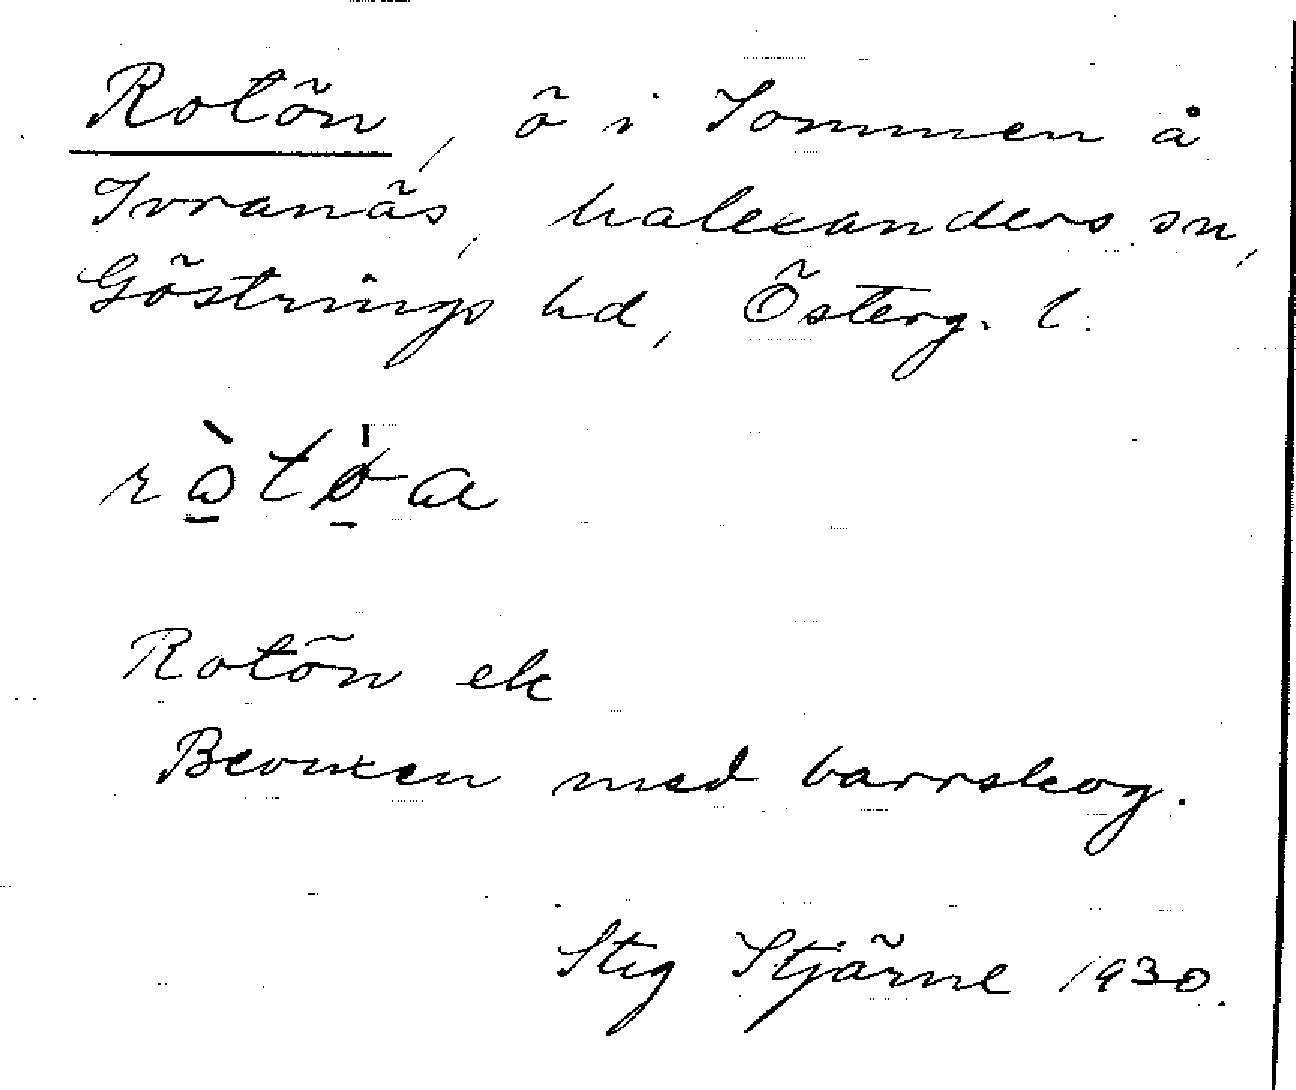 Rotön, ö i Sommen å
Tvranäs, Malexanders sn,
Göstrings hd, Österg. l.
ròtø̀a
Rotön ek
Bevuxen med barrskog.
Stig Stjärne 1930.